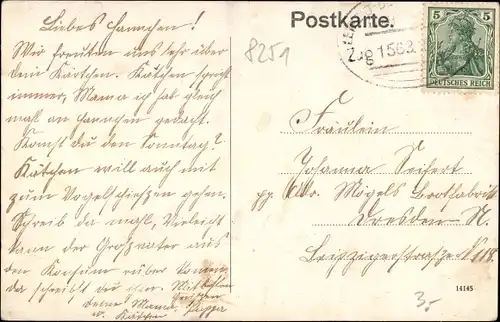 Liebes Hannchen!
Wir freuten uns sehr über
dein Kärtchen. Kätchen spricht
immer, Mama ich hab gleich
mahl an Hannchen gedacht.
Komst du den Sonntag?
Kätchen will auch mit
zum Vogelschießen gehen.
Schreib da mahl, Vieleicht
kann der Großvater aus
den Konsum rüber komm
da schreibst du ihm
Deine Mama, Pappa
u. Kätchen
Postkarte.
8251
Zug 1563
5 5
DEUTSCHES REICH
Fräulein
Johanna Seifert
Mögels Brotfabrik
Dresden-N.
Leipzigerstraße 118.
14145
3,-